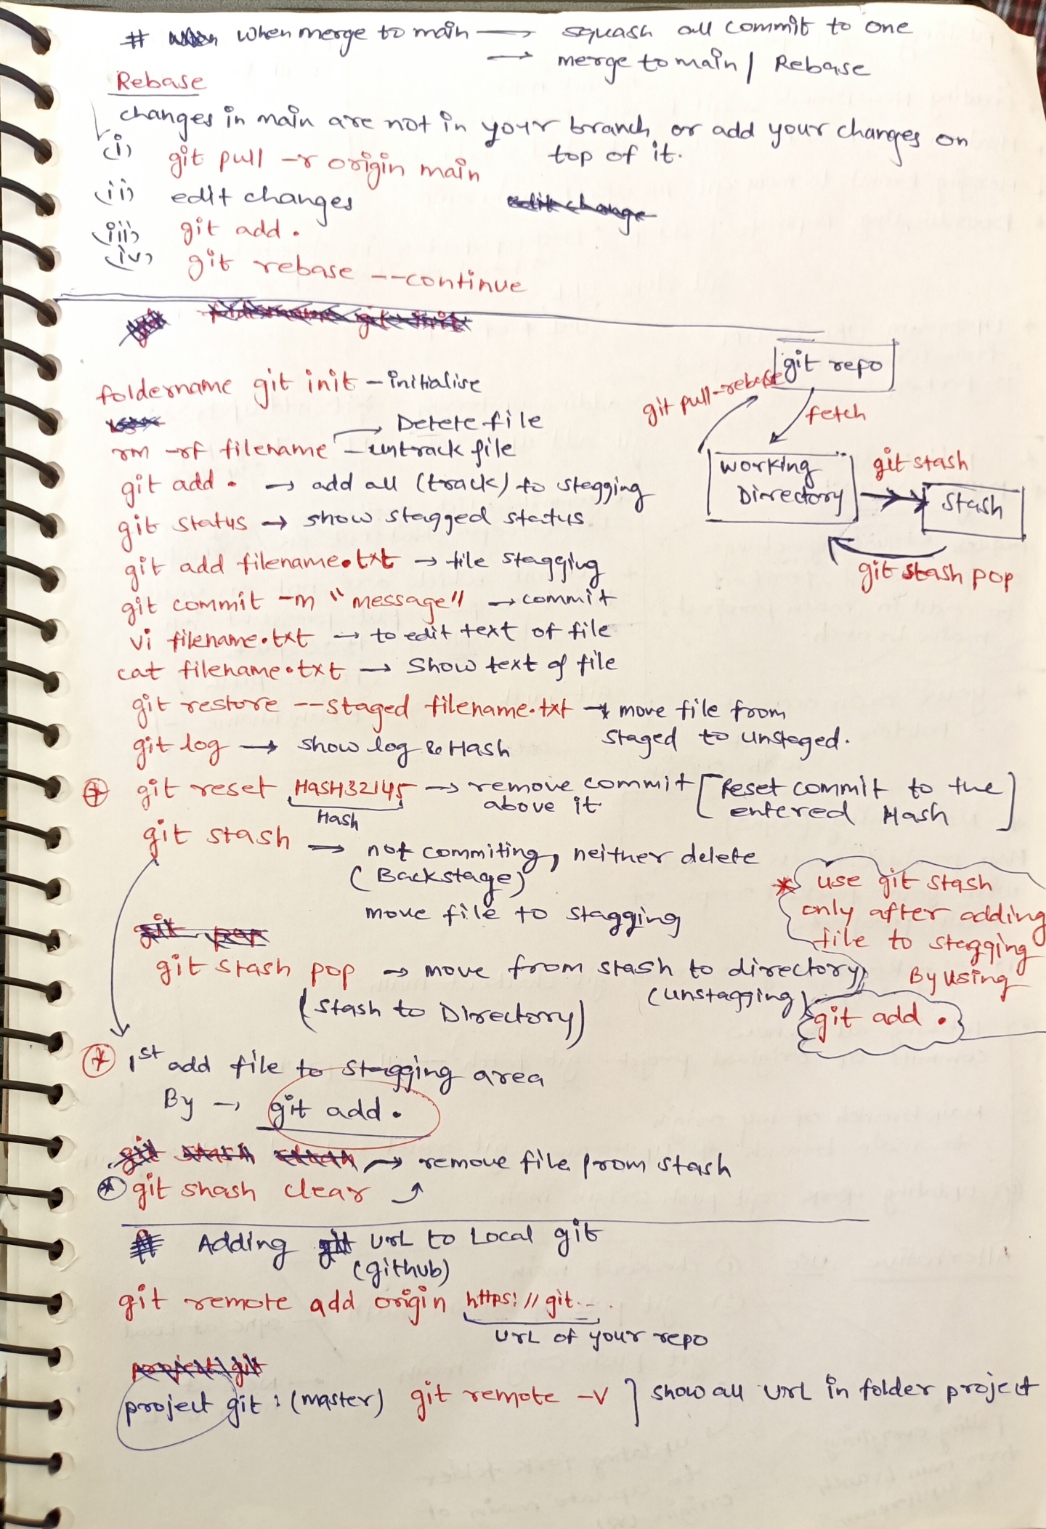 # when merge to main → squash all commit to one
→ merge to main / Rebase
Rebase
changes in main are not in your branch, or add your changes on
top of it.
(i) git pull -r origin main
(ii) edit changes
(iii) git add .
(iv) git rebase --continue
foldername git init - initialise
→ Detete file
rm -rf filename - untrack file
git add . → add all (track) to stegging
git status → show stagged status
git add filename.txt → file stagging
git commit -m "message" → commit
vi filename.txt → to edit text of file
cat filename.txt → Show text of file
git restore --staged filename.txt → move file from
staged to unstaged.
git log → show log & Hash
git reset HASH32145 → remove commit [Reset commit to the
above it entered Hash]
Hash
git stash → not commiting, neither delete
(Backstage)
move file to stagging
git stash pop → move from stash to directory
(unstagging)
(stash to Directory)
* 1st add file to stagging area
By → git add .
→ remove file from stash
* git shash clear
git repo
git pull-rebase
fetch
working
Directory
git stash
stash
git stash pop
* use git stash
only after adding
file to stegging
By using
git add .
# Adding url to Local git
(github)
git remote add origin https://git...
url of your repo
project git : (master) git remote -v } show all url in folder project